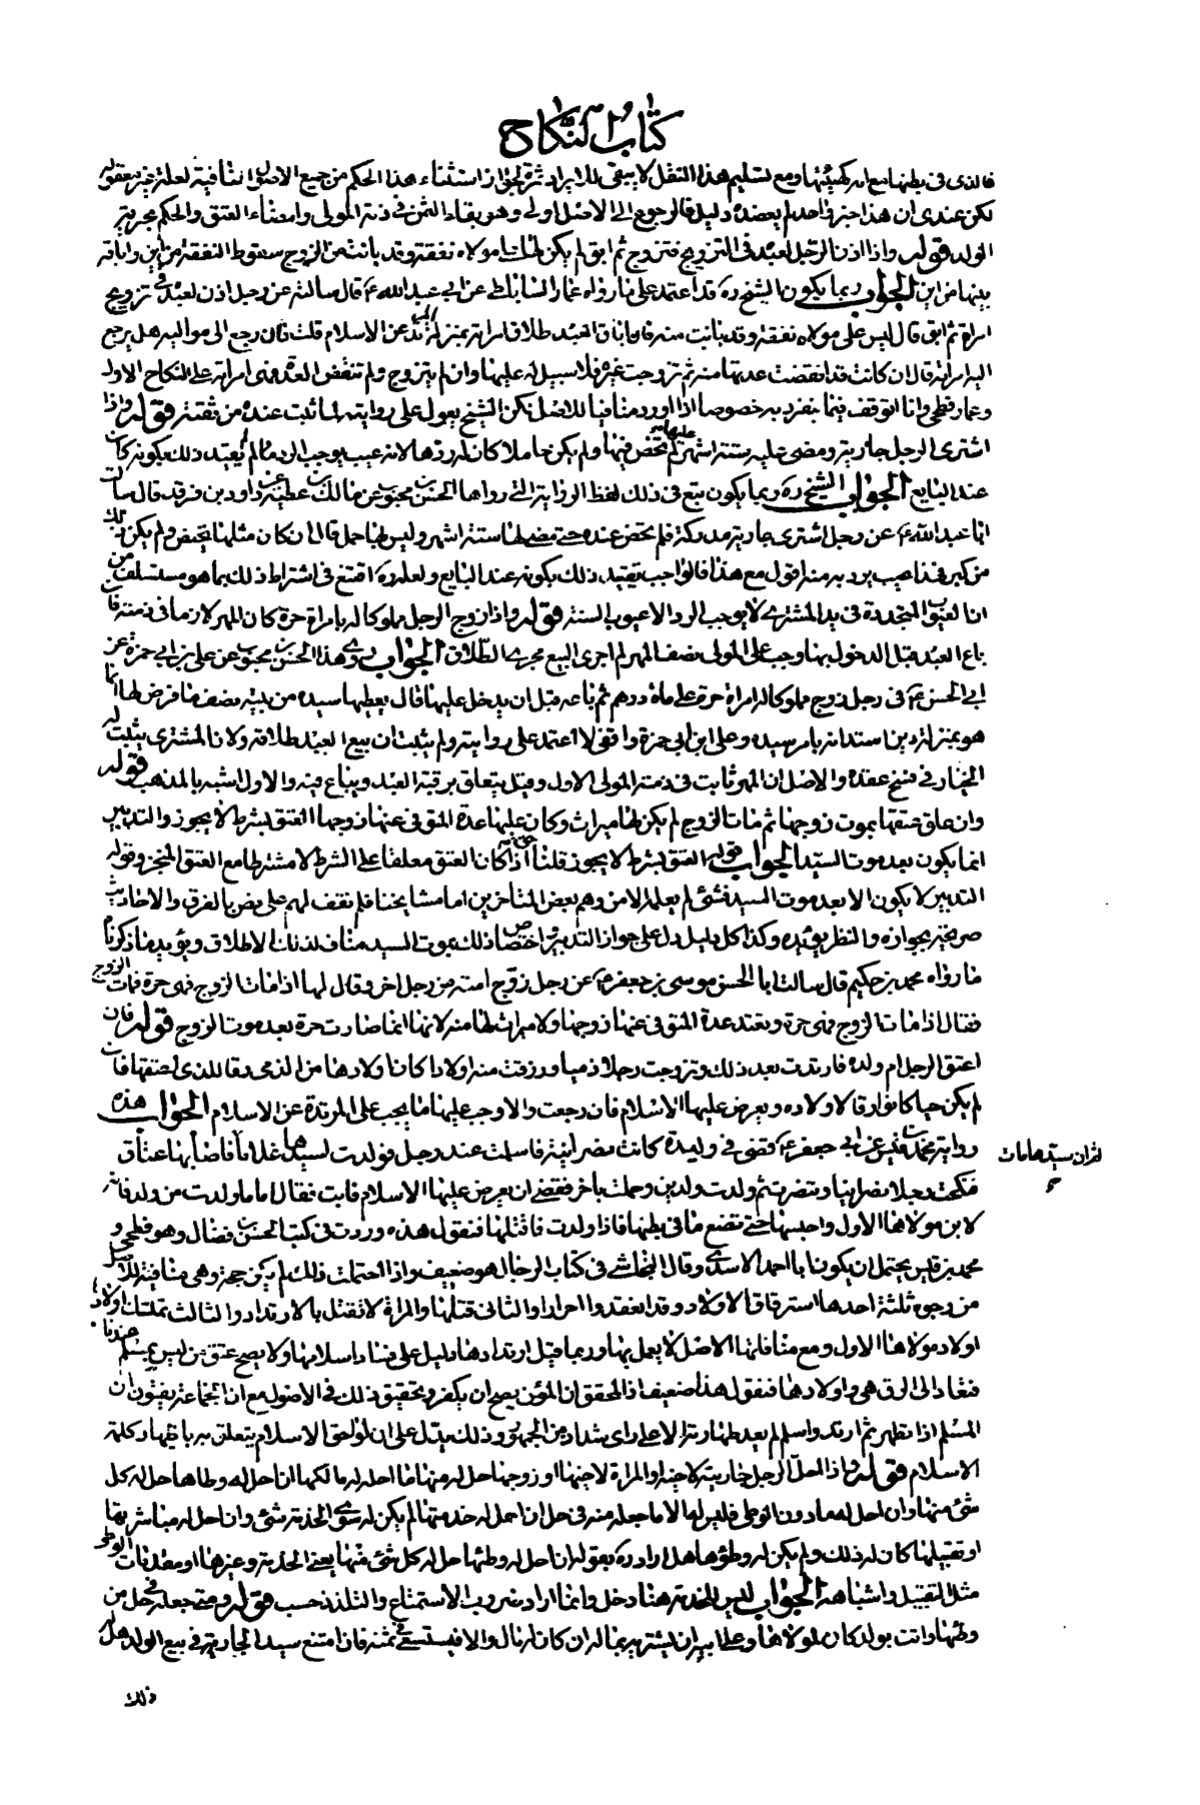 كتاب النكاح
فالذى فى بطنها مع امه كهيئتها ومع تسليم هذا النقل لا يبقى للايراد ثمرة لجواز استثناء هذا الحكم من جميع الاصول المنافية لعلة غير معقولة
لكن عندى ان هذا خبر واحد لم يعضده دليل فالرجوع الى الاصل اولى وهو بقاء الثمن فى ذمة المولى وامضاء العتق والحكم بحرية
الولد قوله واذا اذن الرجل لعبده فى التزويج فتزوج ثم ابق لم يكن لها على مولاه نفقة وقد بانت من الزوج سقوط النفقة من اين واباقه
بينها من اين الجواب ربما يكون الشيخ ره قد اعتمد على ما رواه عمار الساباطى عن ابى عبد الله ع قال سالته عن رجل اذن لعبده فى تزويج
امراة ثم ابق قال ليس على مولاه نفقة وقد بانت منه فان اباق العبد طلاق امراته بمنزلة المرتد عن الاسلام قلت فان رجع الى مواليه هل يرجع
اليه امراته قال ان كانت قد انقضت عدتها منه ثم تزوجت غيره فلا سبيل له عليها وان لم يتزوج ولم تنقض العدة فهى امراته على النكاح الاول
وعمار فطحى وانا اتوقف فيما ينفرد به خصوصا اذا اورد منافيا للاصل لكن الشيخ يعول على روايته لما ثبت عنده من ثقته قوله واذا
اشترى الرجل جارية ومضى عليه ستة اشهر لم تحض فيها ولم يكن حاملا كان له ردها لانه عيب يوجب الرد ما لم يقيد ذلك بكونه كان
عند البايع الجواب الشيخ ره ربما يكون تبع فى ذلك لفظ الرواية التى رواها الحسن بن محبوب عن مالك بن عطية عن داود بن فرقد قال سالت
ابا عبد الله ع عن رجل اشترى جارية مدركة فلم تحض عنده حتى مضى لها ستة اشهر وليس بها حمل قال ان كان مثلها تحيض ولم يكن ذلك
من كبر فهذا عيب يرد به منه اقول مع هذا فالواجب تقييد ذلك بكونه عند البايع ولعله ره اقتنع فى اشتراط ذلك بما هو مستسلف من
ان العيوب المتجددة فى يد المشترى لا يوجب الرد الا عيوب السنة قوله واذا زوج الرجل مملوكا له بامراة حرة كان المهر لازما فى ذمته فان
باع العبد قبل الدخول بها وجب على المولى نصف المهر لم اجرى البيع مجرى الطلاق الجواب روى هذا الحسن بن محبوب عن على بن ابى حمزة عن
ابى الحسن ع فى رجل زوج مملوكا له امراة حرة على ماة درهم ثم باعه قبل ان يدخل عليها قال يعطيها سيده من ثمنه نصف ما فرض لها انما
هو بمنزلة دين استدانه بامر سيده وعلى ابن ابى حمزة واقفى لا اعتمد على روايته ولم يثبت ان بيع العبد طلاقه ولان المشترى يثبت له
الخيار فى فسخ عقده والاصل ان المهر ثابت فى ذمته المولى الاول وقيل يتعلق برقبة العبد ويباع فيه والاول اشبه بالمذهب قوله
وان علق عتقها بموت زوجها ثم مات الزوج لم يكن لها ميراث وكان عليها عدة المتوفى عنها زوجها العتق بشرط لا يجوز والتدبير
انما يكون بعد موت السيد الجواب قوله العتق بشرط لا يجوز قلنا حق اذا كان العتق معلقا على الشرط لا مشترطا مع العتق المنجز وقوله
التدبير لا يكون الا بعد موت السيد فشئ لم يعلم الا من وهم بعض المتاخرين اما مشايخنا فلم نقف لهم على نص بالفرق والاحاديث
صريحة بجوازه والنظر يؤيده وكذا كل دليل دل على جواز التدبير واختصاص ذلك بموت السيد مناف لذلك الاطلاق ويؤيد ما ذكرناه
ما رواه محمد بن حكيم قال سالت ابا الحسن موسى بن جعفر ع عن رجل زوج امته من رجل اخر وقال لها اذا مات الزوج فهى حرة فمات الزوج
فقال اذا مات الزوج فهى حرة وتعتد عدة المتوفى عنها زوجها ولا ميراث لها منه لانها انما صارت حرة بعد موت الزوج قوله فان
اعتق الرجل ام ولده فارتدت بعد ذلك وتزوجت رجلا ذميا ورزقت منه اولادا كان اولادها من الذمى رقا للذى اعتقها فان
لم يكن حيا كانوا رقا لاولاده ويعرض عليها الاسلام فان رجعت والا وجب عليها ما يجب على المرتدة عن الاسلام الجواب هذه
رواية محمد بن قيس عن ابى جعفر ع قضى فى وليدة كانت نصرانية فاسلمت عند رجل فولدت لسيدها غلاما فاضابها عتاق
ثم ان سيدها مات
صح
فنكحت رجلا نصرانيا وتنصرت ثم ولدت ولدين وحملت باخر فقضى ان يعرض عليها الاسلام فابت فقال اما ما ولدت من ولد فانه
لابن مولاها الاول واحبسها حتى تضع ما فى بطنها فاذا ولدت فاقتلها فنقول هذه وردت فى كتب الحسن بن فضال وهو فطحى و
محمد بن قيس يحتمل ان يكون ابا احمد الاسدى وقال النجاشى فى كتاب الرجال هو ضعيف واذا احتملت ذلك لم يكن حجة وهى منافية للاصل
من وجوه ثلثة احدها استرقاق الاولاد وقد انعقدوا احرارا والثانى قتلها والمراة لا تقتل بالارتداد والثالث تملك اولادها
اولاد مولاها الاول ومع منافاتها الاصل لا يعمل بها وربما قيل ارتدادها دليل على فساد اسلامها ولا يصح عتق من ليس بمسلم عندنا
فتعاد الى الرق هى واولادها فنقول هذا ضعيف اذ المحقق ان المؤمن يصح ان يكفر وتحقيق ذلك فى الاصول مع ان الجماعة يفتون ان
المسلم اذا تطهر ثم ارتد واسلم لم يعد طهارته الا على راى شاذ من الجمهور وذلك يدل على ان لواحق الاسلام يتعلق به باظهار كلمة
الاسلام قوله واذا احل الرجل جاريته لاخيه او المراة لاخيها او زوجها حل له منها ما احله له مالكها ان احل له وطاها حل له كل
شئ منها وان احل له ما دون الوطى فليس له الا ما جعله منه فى حل ان احل له خدمتها لم يكن له سوى الخدمة شئ وان احل له مباشرتها
او تقبيلها كان له ذلك ولم يكن له وطؤها هل اراد ره بقوله ان احل له وطئها حل له كل شئ منها يعنى الخدمة وغيرها او مقدمات الوطى
مثل التقبيل واشباهه الجواب ليس للخدمة هنا دخل وانما اراد ضروب الاستمتاع والتلذذ حسب قوله ومتى جعله فى حل من
وطئها واتت بولد كان لمولاها وعلى ابيه ان يشتريه بماله ان كان له مال والا فيستسعى فى ثمنه فان امتنع سيد الجارية فى بيع الولد هل له
ذلك